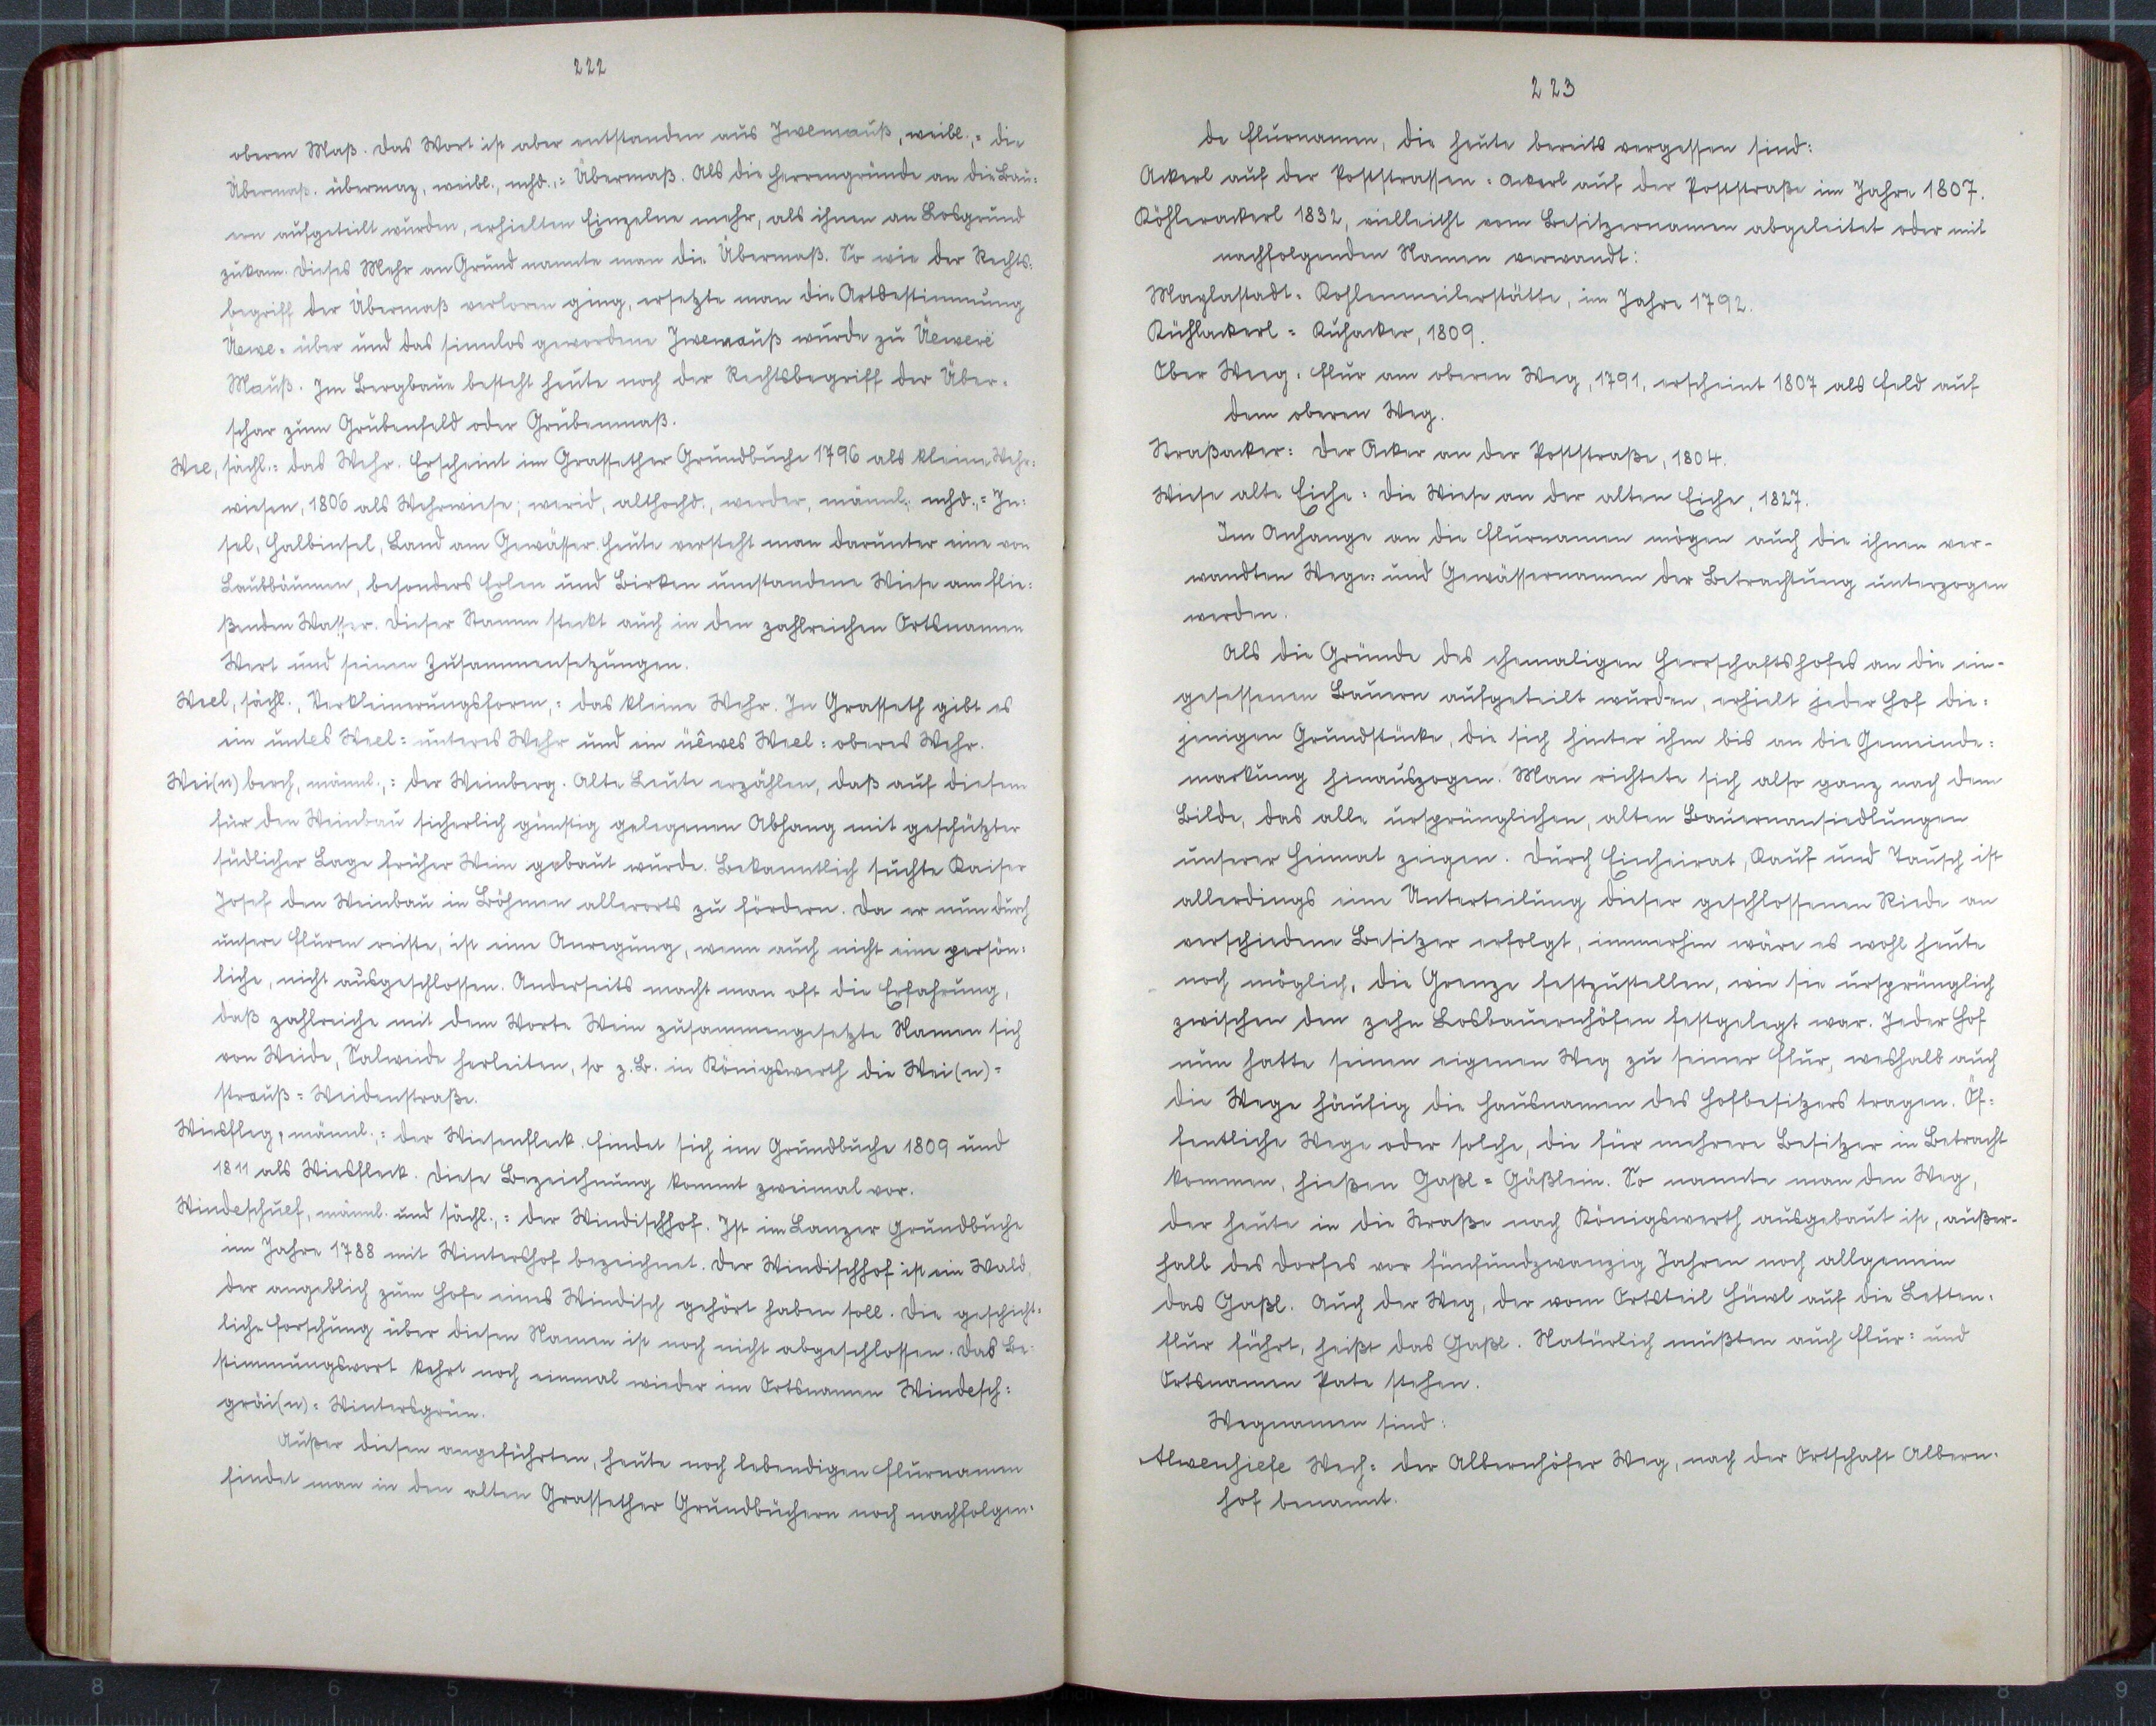 222
oberen Maß. Das Wort ist aber entstanden aus Iwemauß, weibl., = die
Übermaß. übermaz, weibl., mhd., = Übermaß. Als die Herrengründe an die Bau=
ern aufgeteilt wurden, erhielten Einzelne mehr, als ihnen an Losgrund
zukam. Dieses Mehr an Grund nannte man die Übermaß. So wie der Rechts=
begriff der Übermaß verloren ging, ersetzte man die Artbestimmung
Üewe = über und das sinnlos gewordene Iwemauß wurde zu Üewere
Mauß. Im Bergbaue besteht heute noch der Rechtsbegriff der Über=
schar zum Grubenfeld oder Grubenmaß.
Wee, sächl.: das Wehr. Erscheint im Grassether Grundbuche 1796 als kleine Wehr=
wiesen, 1806 als Wehrwiese; werid, althochd., werder, männl., mhd., = In=
sel, Halbinsel, Land am Gewässer. Heute versteht man darunter eine von
Laubbäumen, besonders Erlen und Birken umstandene Wiese am flie=
ßenden Wasser. Dieser Stamm steckt auch in den zahlreichen Ortsnamen
Wert und seinen Zusammensetzungen.
Weel, sächl., Verkleinerungsform, = das kleine Wehr. In Grasseth gibt es
ein untes Weel = unteres Wehr und ein üêwes Weel = oberes Wehr.
Wei(n)berch, männl., = der Weinberg. Alte Leute erzählen, daß auf diesem
für den Weinbau sicherlich günstig gelegenen Abhang mit geschützter
südlicher Lage früher Wein gebaut wurde. Bekanntlich suchte Kaiser
Josef den Weinbau in Böhmen allerorts zu fördern. Da er nun durch
unsere Fluren reiste, ist eine Anregung, wenn auch nicht eine persön=
liche, nicht ausgeschlossen. Anderseits macht man oft die Erfahrung,
daß zahlreiche mit dem Worte Wein zusammengesetzte Namen sich
von Weide, Salweide herleiten, so z.B. in Königswerth die Wei(n)=
strauß = Weidenstraße.
Wiesfleg, männl., = der Wiesenfleck. Findet sich im Grundbuche 1809 und
1811 als Wiesfleck. Diese Bezeichnung kommt zweimal vor.
Windeschuef, männl. und sächl., = der Windischhof. Ist im Lanzer Grundbuche
im Jahre 1788 mit Wintershof bezeichnet. Der Windischhof ist ein Wald,
der angeblich zum Hofe eines Windisch gehört haben soll. Die geschicht=
liche Forschung über diesen Namen ist noch nicht abgeschlossen. Das Be=
stimmungswort kehrt noch einmal wieder im Ortsnamen Windesch=
gräi(n) = Wintersgrün.
Außer diesen angeführten, heute noch lebendigen Flurnamen
findet man in den alten Grassether Grundbüchern noch nachfolgen=
223
de Flurnamen, die heute bereits vergessen sind:
Ackerl auf der Poststrassen = Ackerl auf der Poststraße im Jahre 1807.
Köhlerackerl 1832, vielleicht vom Besitzernamen abgeleitet oder mit
nachfolgenden Namen verwandt:
Maylastadt = Kohlenmeilerstätte, im Jahre 1792.
Kühlackerl = Kuhacker, 1809.
Ober Weeg = Flur am oberen Weg, 1791, erscheint 1807 als Feld auf
dem oberen Weg.
Straßacker: Der Acker an der Poststraße, 1804.
Wiese alte Eiche = die Wiese an der alten Eiche, 1827.
Im Anhange an die Flurnamen mögen auch die ihnen ver-
wandten Wege= und Gewässernamen der Betrachtung unterzogen
werden.
Als die Gründe des ehemaligen Herrschaftshofes an die ein-
gesessenen Bauern aufgeteilt wurden, erhielt jeder Hof die=
jenigen Grundstücke, die sich hinter ihm bis an die Gemeinde=
markung hinauszogen. Man richtete sich also ganz nach dem
Bilde, das alle ursprünglichen, alten Bauernansiedlungen
unserer Heimat zeigen. Durch Einheirat, Kauf und Tausch ist
allerdings eine Unterteilung dieser geschlossenen Riede an
verschiedene Besitzer erfolgt, immerhin wäre es wohl heute
noch möglich, die Grenze festzustellen, wie sie ursprünglich
zwischen den zehn Losbauernhöfen festgelegt war. Jeder Hof
nun hatte seinen eigenen Weg zu seiner Flur, weshalb auch
die Wege häufig die Hausnamen des Hofbesitzers tragen. Öf=
fentliche Wege oder solche, die für mehrere Besitzer in Betracht
kommen, hießen Gaßl = Gäßlein. So nannte man den Weg,
der heute in die Straße nach Königswerth ausgebaut ist, außer-
halb des Dorfes vor fünfundzwanzig Jahren noch allgemein
das Gaßl. Auch der Weg, der vom Ortsteil Hüwl auf die Letten=
flur führt, heißt das Gaßl. Natürlich mußten auch Flur= und
Ortsnamen Pate stehen.
Wegnamen sind:
Alwenhiefe Wech = der Albernhöfer Weg, nach der Ortschaft Albern=
hof benannt.